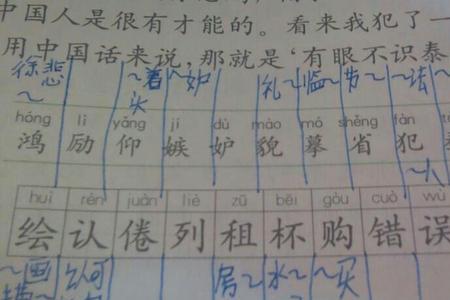 中国人是很有才能的。看来我犯了一
用中国话来说，那就是‘有眼不识泰
徐悲～ ～着头 ～妒 礼～ 临～ 节～ ～法
hóng lì yǎng jí dù mào mó shěng fàn
鸿 励 仰 嫉 妒 貌 摹 省 犯
～人
huì rèn juàn liè zū bēi gòu cuò wù
绘 认 倦 列 租 杯 购 错 误
～画 认可 房～ 水～ ～买